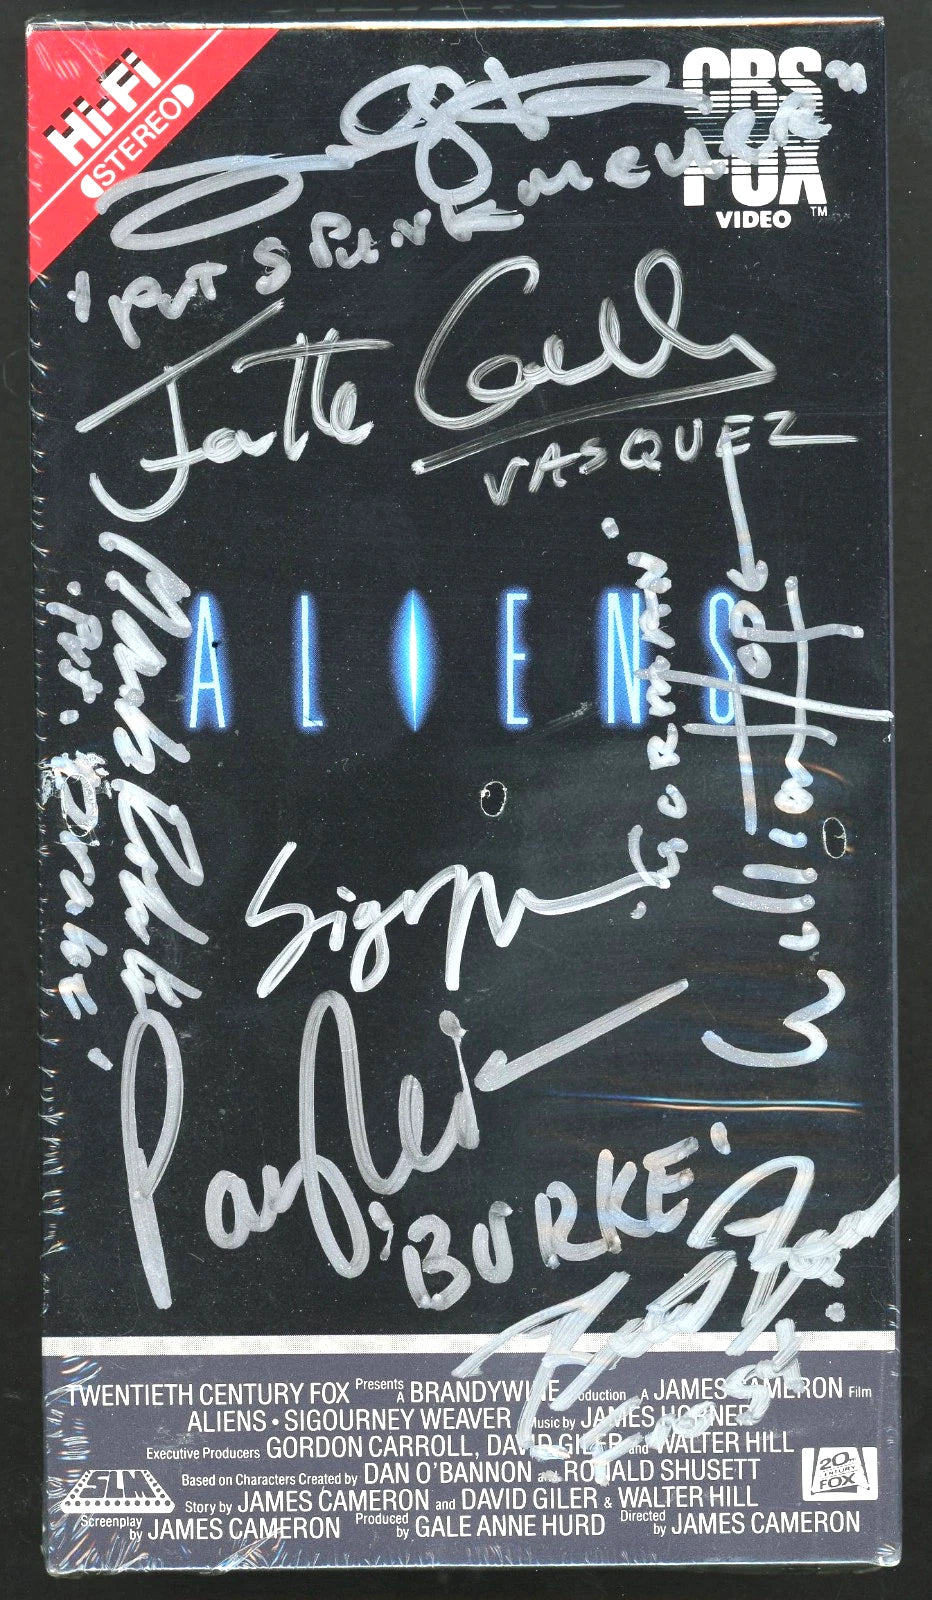 Hi-Fi
STEREO
CBS
FOX
VIDEO ™
"PVT SPUNKMEYER"
Jenette Goldstein
VASQUEZ
'PVT. Drake'
'GORMAN'
William Hope
ALIENS
Sigourney
Paul Reiser
'BURKE'
TWENTIETH CENTURY FOX Presents A BRANDYWINE Production A JAMES CAMERON Film
ALIENS • SIGOURNEY WEAVER Music by JAMES HORNER
Executive Producers GORDON CARROLL, DAVID GILER and WALTER HILL
Based on Characters Created by DAN O'BANNON and RONALD SHUSETT
Story by JAMES CAMERON and DAVID GILER & WALTER HILL
Screenplay by JAMES CAMERON Produced by GALE ANNE HURD Directed by JAMES CAMERON
SLM
20th
CENTURY
FOX